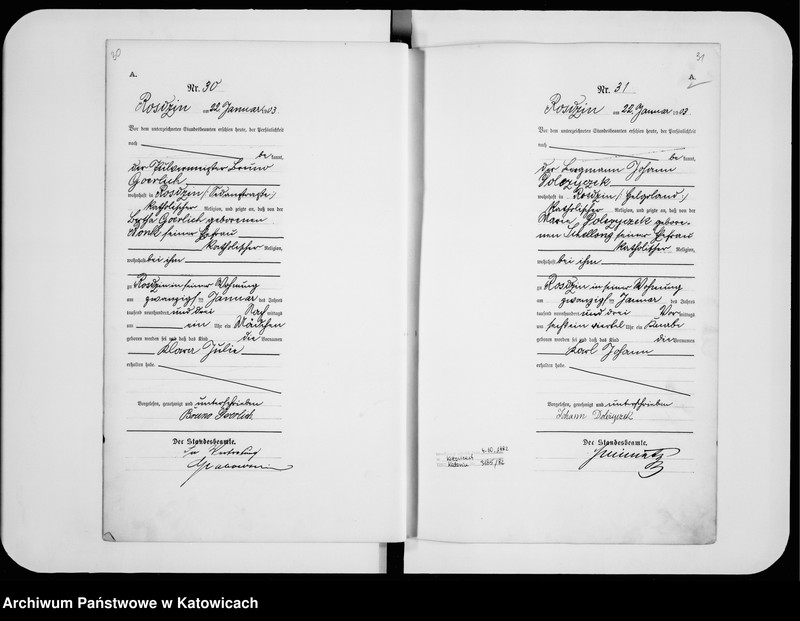 30
A.
Nr. 30
Rosdzin am 22 Januar 1903
Vor dem unterzeichneten Standesbeamten erschien heute, der Persönlichkeit
nach
be kannt,
der Bruno
Goerlich
wohnhaft in Rosdzin
katholischer Religion, und zeigte an, daß von der
Goerlich geborenen
seiner Ehefrau
katholischer Religion,
wohnhaft bei ihm
zu Rosdzin in seiner Wohnung
am zwanzigsten Januar des Jahres
tausend neunhundert und drei Nachmittags
um ein Uhr ein Mädchen
geboren worden sei und daß das Kind die Vornamen
Klara Julie
erhalten habe.
Vorgelesen, genehmigt und unterschrieben
Bruno Goerlich.
Der Standesbeamte.
In Vertretung
31
A.
Nr. 31
Rosdzin am 22. Januar 1903
Vor dem unterzeichneten Standesbeamten erschien heute, der Persönlichkeit
nach
be kannt,
der Bergmann Johann
wohnhaft in Rosdzin
katholischer Religion, und zeigte an, daß von der
Marie gebore-
nen seiner Ehefrau
katholischer Religion,
wohnhaft bei ihm
zu Rosdzin in seiner Wohnung
am zwanzigsten Januar des Jahres
tausend neunhundert und drei Vormittags
um sechs ein viertel Uhr ein Knabe
geboren worden sei und daß das Kind die Vornamen
Karl Johann
erhalten habe.
Vorgelesen, genehmigt und unterschrieben
Johann
Der Standesbeamte.
Archiwum Państwowe w Katowicach